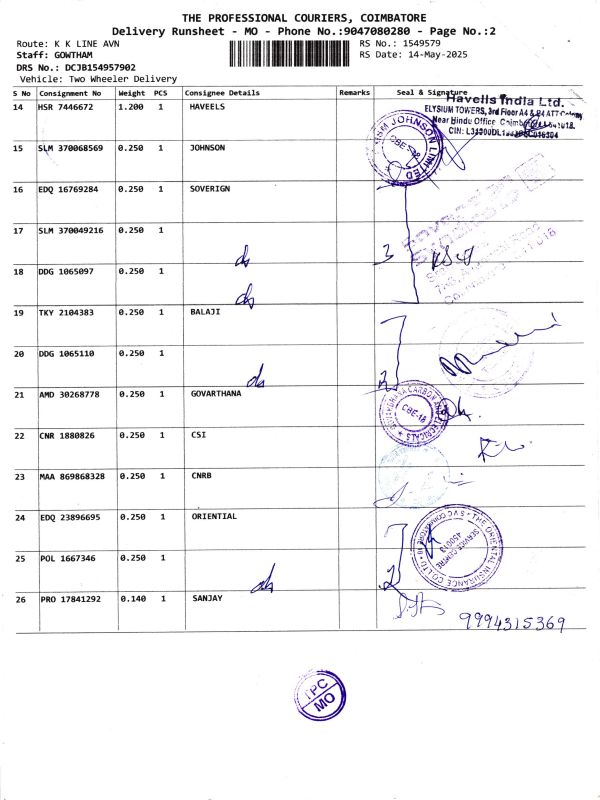 THE PROFESSIONAL COURIERS, COIMBATORE
Delivery Runsheet - MO - Phone No.:9047080280 - Page No.:2
Route: K K LINE AVN
RS No.: 1549579
Staff: GOWTHAM
RS Date: 14-May-2025
DRS No.: DCJB154957902
Vehicle: Two Wheeler Delivery
S No Consignment No Weight PCS Consignee Details Remarks Seal & Signature
14 HSR 7446672 1.200 1 HAVEELS
Havells India Ltd.
ELYSIUM TOWERS, 3rd Floor A4 & B4 ATT
Near Hindu Office
15 SLM 370068569 0.250 1 JOHNSON
JOHNSON LIMITED
CBE-18
16 EDQ 16769284 0.250 1 SOVERIGN
17 SLM 370049216 0.250 1
ds 3
18 DDG 1065097 0.250 1
ds
19 TKY 2104383 0.250 1 BALAJI
20 DDG 1065110 0.250 1
ds 2
21 AMD 30268778 0.250 1 GOVARTHANA
CBE-18
22 CNR 1880826 0.250 1 CSI
23 MAA 869868328 0.250 1 CNRB
24 EDQ 23896695 0.250 1 ORIENTIAL
THE ORIENTAL INSURANCE CO LTD
SERVICE CENTRE
25 POL 1667346 0.250 1
ds 2
26 PRO 17841292 0.140 1 SANJAY
9994315369
TPC
MO